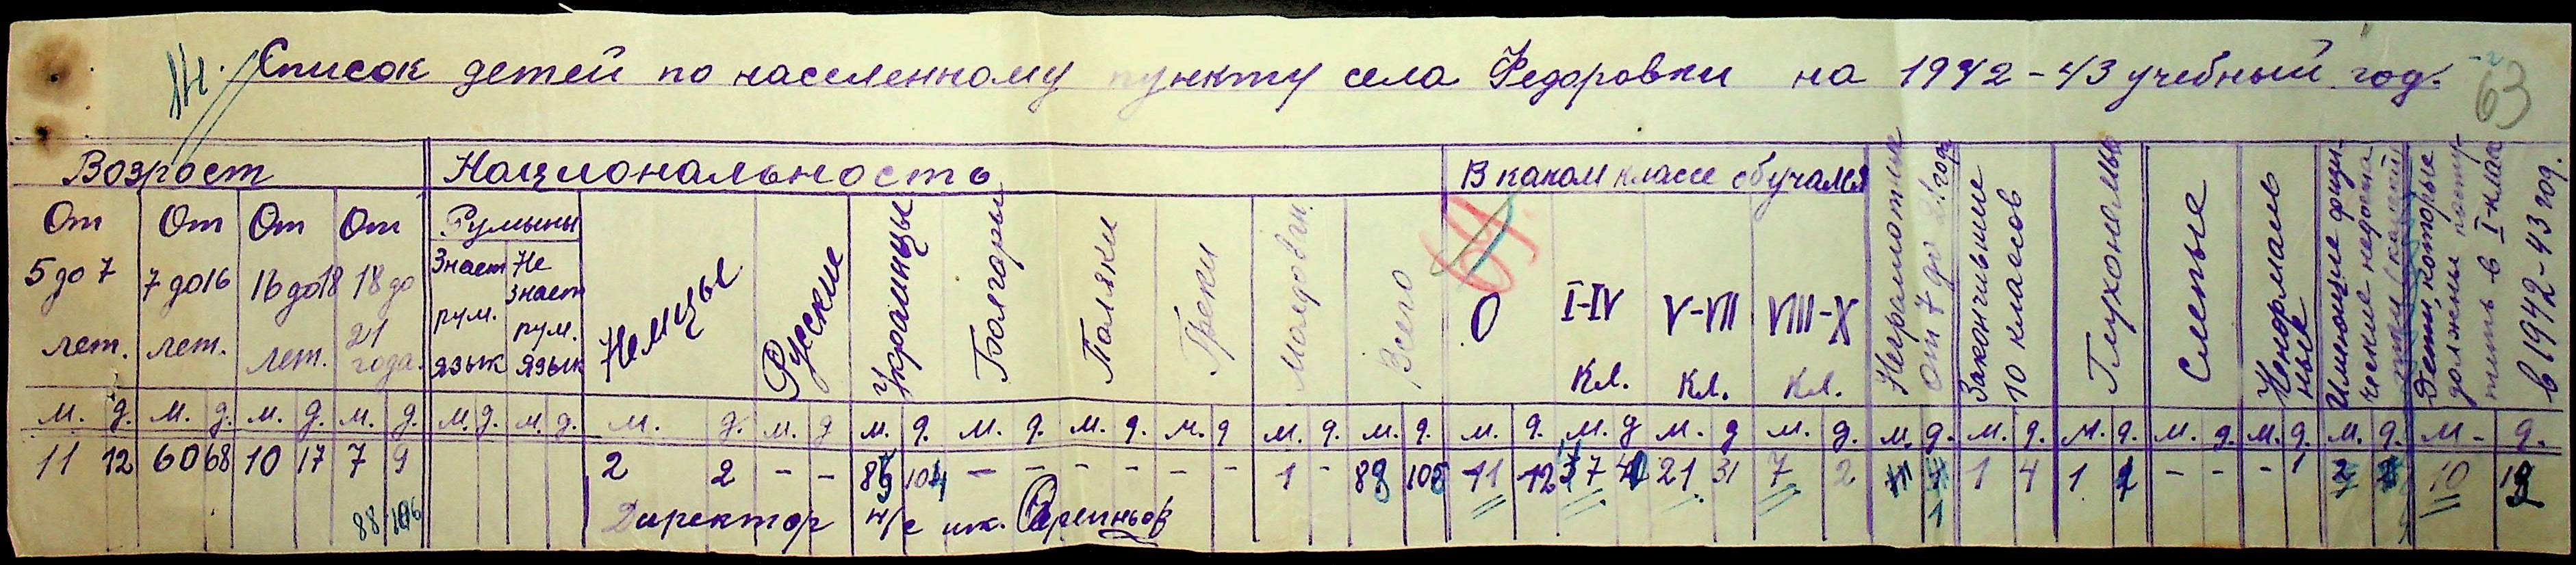 Список детей по населенному пункту села Федоровки на 1942-43 учебный год.
63
Возраст Национальность В каком классе обучался
От 5 до 7 лет.
От 7 до 16 лет.
От 16 до 18 лет.
От 18 до 21 года.
Румыны
Знает рум. язык
Не знает рум. язык
Немцы
Русские
Украинцы
Болгоры
Поляки
Греки
Молдован.
Всего
64
0
I-IV кл.
V-VII кл.
VIII-X кл.
Неграмотные от 7 до 21 год
Закончившие 10 классов
Глухонемые
Слепые
Ненормальные
Имеющие физические недоста
Дети, которые должны поступить в I-клас в 1942-43 год.
м. д. м. д. м. д. м. д. м. д. м. д. м. д. м. д. м. д. м. д. м. д. м. д. м. д. м. д. м. д. м. д. м. д. м. д. м. д. м. д. м. д. м. д. м. д. м. д. м. д.
11 12 60 68 10 17 7 9 2 2 - - 85 104 - - - - - - 1 - 88 106 11 12 37 21 31 7 2 1 4 1 - - - 1 2 10 12
88 106
Директор Н/с шк.
1